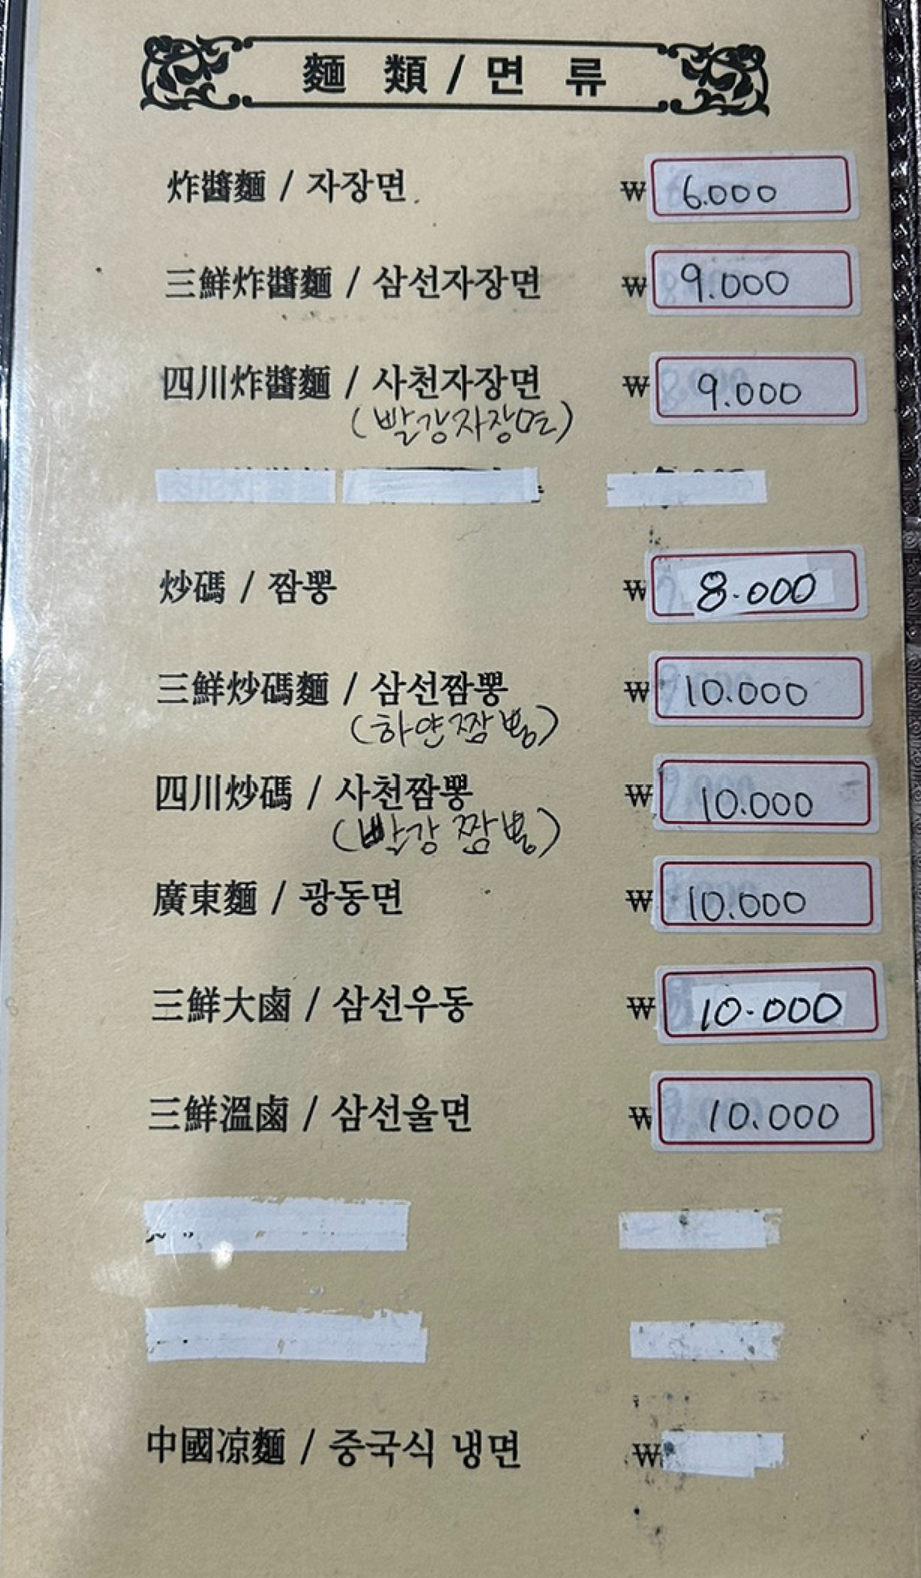 麵類/면류
炸醬麵 / 자장면 ₩ 6.000
三鮮炸醬麵 / 삼선자장면 ₩ 9.000
四川炸醬麵 / 사천자장면 ₩ 9.000
(빨강자장면)
炒碼 / 짬뽕 ₩ 8.000
三鮮炒碼麵 / 삼선짬뽕 ₩ 10.000
(하얀짬뽕)
四川炒碼 / 사천짬뽕 ₩ 10.000
(빨강짬뽕)
廣東麵 / 광동면 ₩ 10.000
三鮮大鹵 / 삼선우동 ₩ 10.000
三鮮溫鹵 / 삼선울면 ₩ 10.000
中國凉麵 / 중국식 냉면 ₩